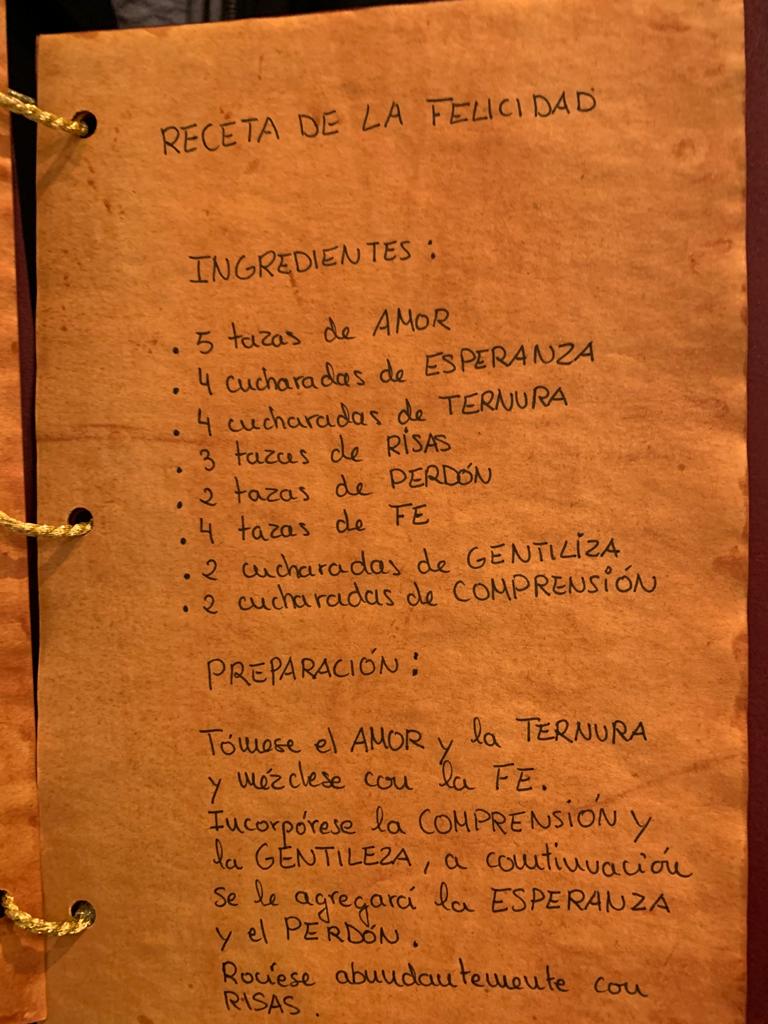 RECETA DE LA FELICIDAD
INGREDIENTES:
. 5 tazas de AMOR
. 4 cucharadas de ESPERANZA
. 4 cucharadas de TERNURA
. 3 tazas de RISAS
. 2 tazas de PERDÓN
. 4 tazas de FE
. 2 cucharadas de GENTILIZA
. 2 cucharadas de COMPRENSIÓN
PREPARACIÓN:
Tómese el AMOR y la TERNURA
y mézclese con la FE.
Incorpórese la COMPRENSIÓN y
la GENTILEZA, a continuación
se le agregará la ESPERANZA
y el PERDÓN.
Rocíese abundantemente con
RISAS.